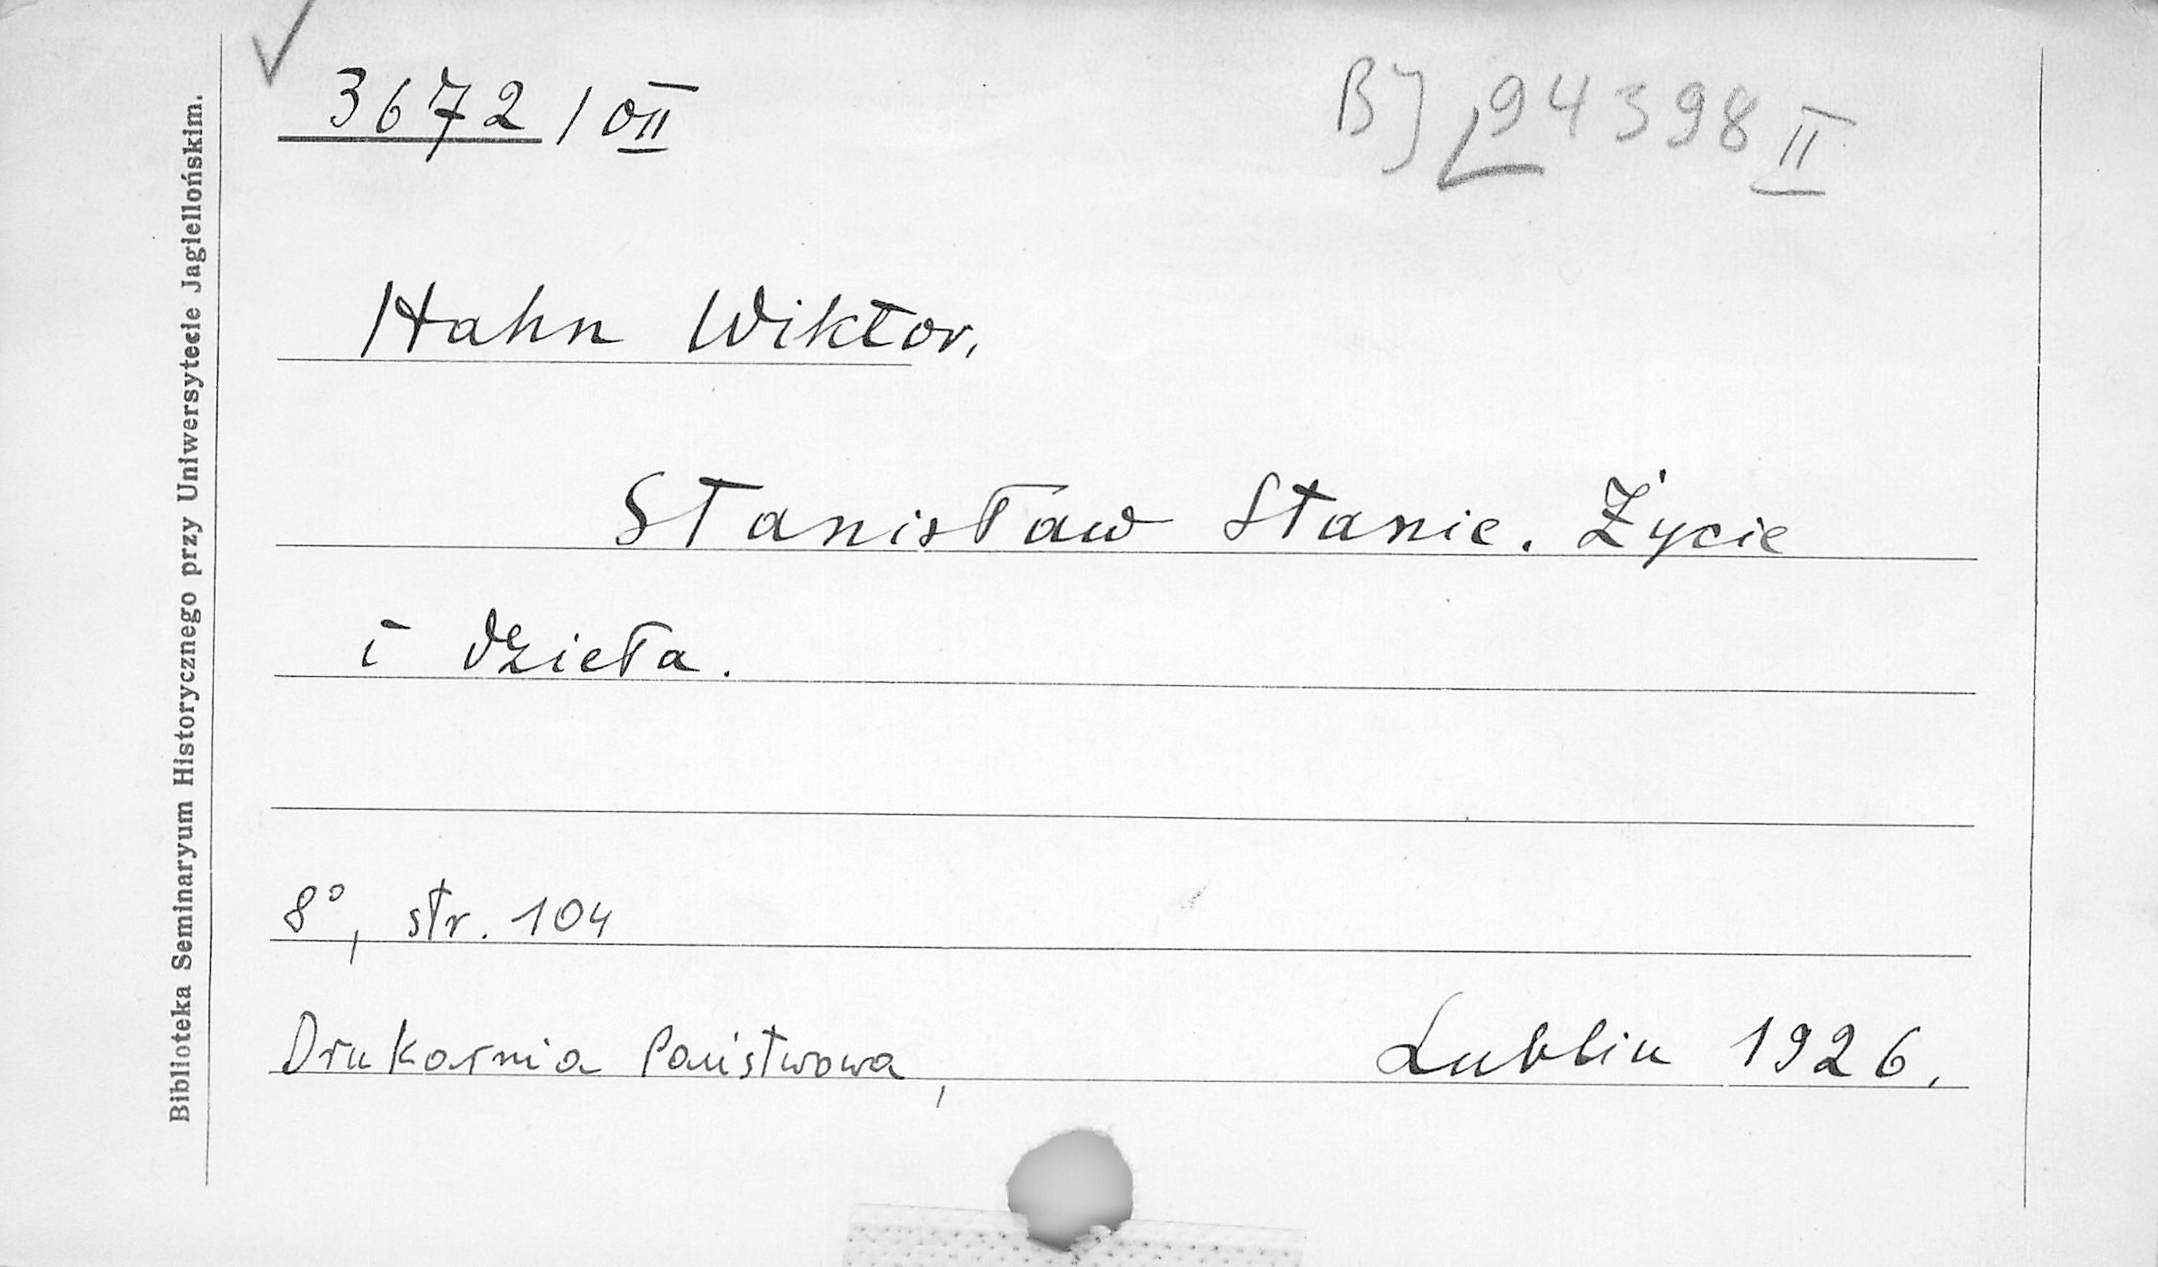 3672 / OII
BJ 94398 II
Hahn Wiktor.
Stanisław Stanic. Życie
i dzieła.
8°, str. 104
Drukarnia Państwowa,
Lublin 1926.
Biblioteka Seminaryum Historycznego przy Uniwersytecie Jagiellońskim.